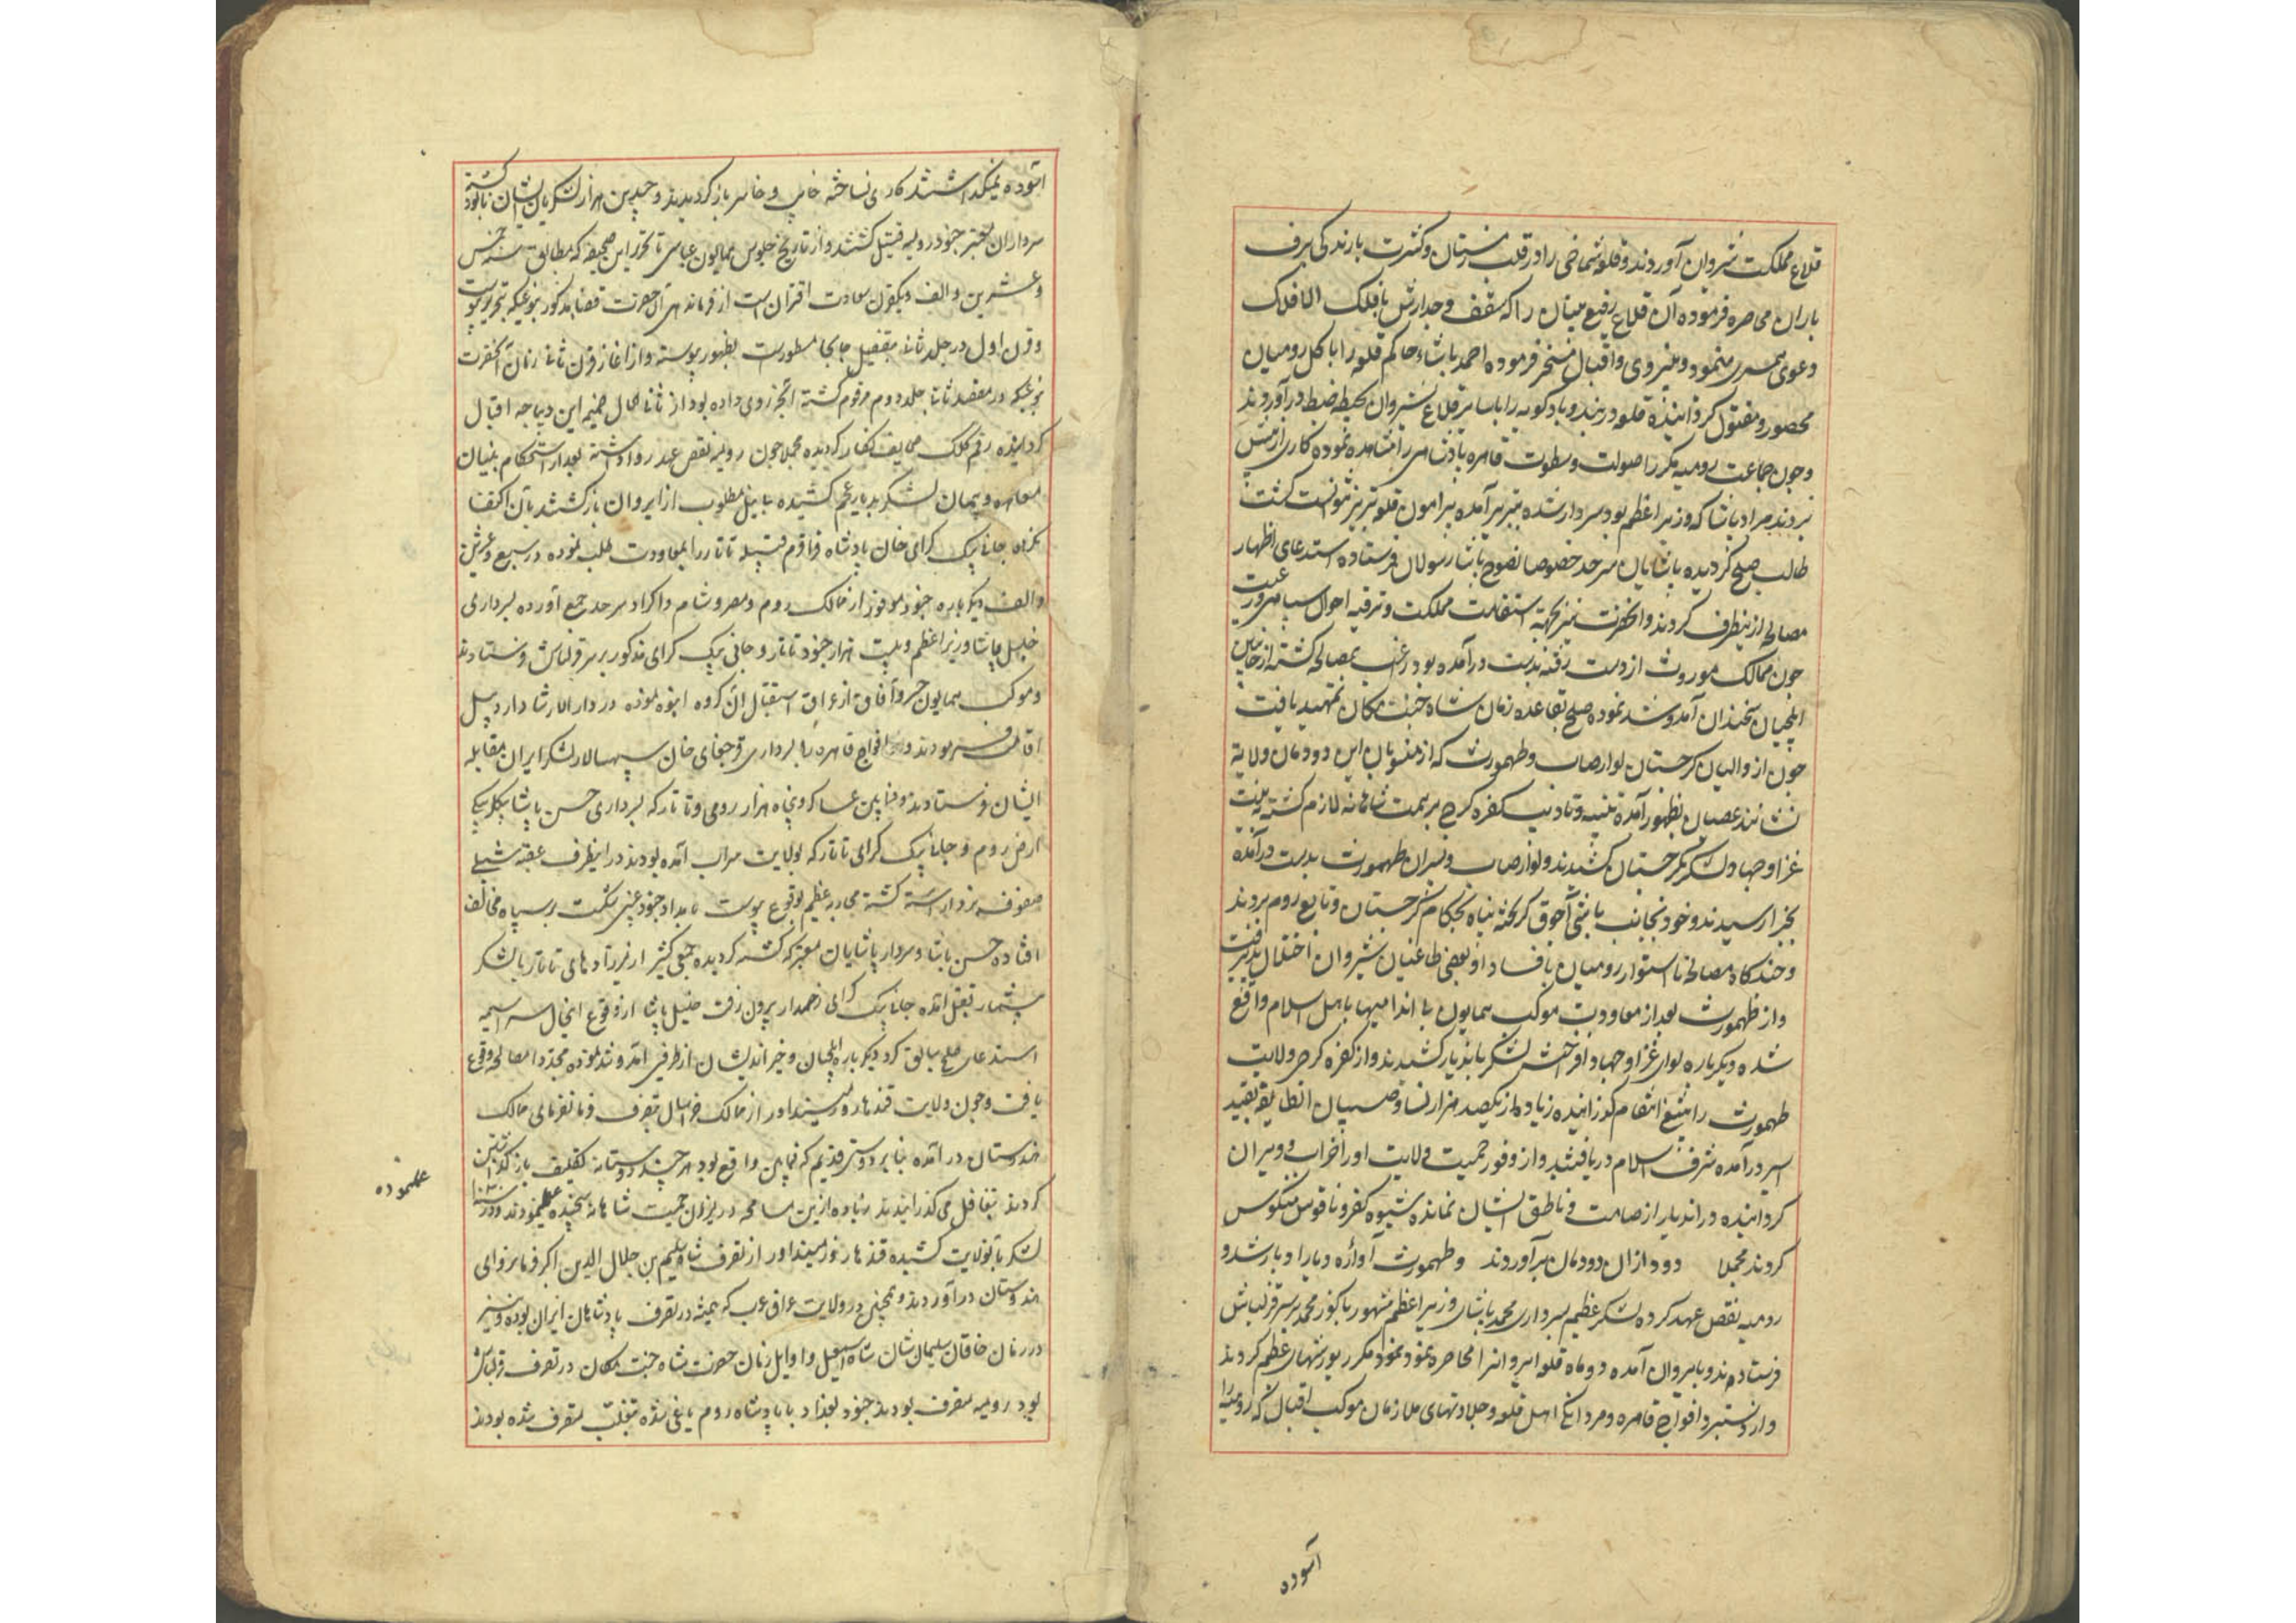 قلاع مملکت شروان آوردند و قلعه شماخی را در قلب زمستان و کثرت بارندگی برف
باران محاصره فرموده آن قلاع رفیع بنیان را که سقف و جدارش با فلک الافلاک
دعوی همسری مینمود و بنیروی و اقبال مسخر فرموده احمد پاشاء حاکم قلعه را با کل رومیان
محصور و مقتول کردانیذه قلعه دربند و بادکوبه را با سایر قلاع شیروان بحیطه ضبط درآوردند
و چون جماعت رومیه مکرر صولت و سطوت قاهره پادشاهی را مشاهده نموده کاری از پیش
نبردند مراد پاشا که وزیر اعظم بود سردار شده بتبریز آمده پیرامون قلعه تبریز نتوانست کشت
طالب صلح کردیده پاشایان سرحد خصوصا نصوح پاشا رسولان فرستاده استدعای اظهار
مصالحه ازینطرف کردند و انحضرت نیز بجهة استقامت مملکت و ترفیه احوال سپاهی و رعیت
چون ممالک موروث از دست رفته بدست درآمده بود راغب بمصالحه کشته از جانبین
ایلچیان سخندان آمد و شد نموده صلح بقاعده زمان شاه جنت مکان تمهید یافت
چون از والیان کرجستان لوارصاب و طهمورث که از منسوبان این دودمان ولایة
نشانند عصیان بظهور آمده تنبیه و تادیب کفره کرج بر همت شاهانه لازم کشته به نیت
غزا و جهاد لشکر بکرجستان کشیدند و لوارصاب و پسران طهمورث بدست درآمده
بجزا رسیدند و خود بجانب باشی آچوق کریخته پناه بحکام کرجستان و تابع روم بردند
و چندکاه مصالحه نااستوار رومیان بافساد او بعضی طاغیان شیروان اختلال پذیرفت
و از طهمورث بعد از معاودت موکب همایون بی اندامیها باهل اسلام واقع
شده دیکرباره لوای غزا و جهاد افراخته لشکر بانذیار کشیدند و از کفره کرج ولایت
طهمورث را بتیغ انتقام کذرانیده زیاده از یکصد هزار نسا و صبیان انطایفه بقید
اسر درآمده شرف اسلام دریافتند و از وفور حمیت ولایت او را خراب و ویران
کردانیده در اندیار از صامت و ناطق ایشان نمانده شیوه کفر و ناقوس منکوس
کردند مجملا دود از ان دودمان برآوردند و طهمورث آواره دیار ادبار شد و
رومیه نقص عهد کرده لشکر عظیم بسرداری محمد پاشای وزیر اعظم مشهور باکوز محمد بر سر قزلباش
فرستادند و بایروان آمده دو ماه قلعه ایروانرا محاصره نمود مکرر یورشهای عظیم کردند
و از دستبرد افواج قاهره و مردانکی اهل قلعه و جلادتهای ملازمان موکب اقبال که رومیه را
آسوده
آسوده نمیکذاشتند کاری نساخته خایب و خاسر باز کردیدند و چندین هزار لشکریان ایشان نابود کشته
سرداران معتبر جنود رومیه قتیل کشتند و از تاریخ جلوس همایون عباسی تا تحریر این صحیفه که مطابق سنه خمس
و عشرین و الف و یکقرن سعادت اقتران است از فرماندهی آن حضرت قضایا مذکور بنوعیکه تحریر پیوست
و قرن اول در جلد ثانی بتفصیل جابجا مسطورست بظهور پیوسته و از اغاز قرن ثانی زمان آنحضرت
بنوعیکه در مقصد ثانی جلد دوم مرقوم کشته آنچه روی داده بود از ثانی الحال ضمیمه این دیباجه اقبال
کردانیده رقم کلک صحایف نکار کردیده مجملا چون رومیه نقص عهد روا داشته بعد از استحکام بنیان
معاهده و پیمان لشکر بدیار عجم کشیده بی نیل مطلوب از ایروان باز کشتند بآن اکتفا
نکرده جانی بیک کرای خان پادشاه قراقرم قبیله تاتار را بمعاودت طلب نموده در سبع و عشرین
و الف دیکرباره جنود موفور از ممالک روم و مصر و شام و اکراد سرحد جمع آورده بسرداری
خلیل پاشا وزیر اعظم و بیست هزار جنود تاتار و جانی بیک کرای مذکور بر سر قزلباش فرستادند
و موکب همایون خسرو آفاق از عراق استقبال آن کروه انبوه نموذه در دار الارشاد اردبیل
اقامت فرمودند و افواج قاهره را بسرداری قرچغای خان سپهسالار لشکر ایران بمقابله
ایشان فرستادند و فیمابین عساکر و پنجاه هزار رومی و تاتار که بسرداری حسن پاشا بیکلربیکی
ارض روم و جانی بیک کرای تاتار که بولایت سراب آمده بودند در اینطرف عقبه شبلی
صفوف نبرد آراسته کشته محاربه عظیم بوقوع پیوست بامداد جنود غیبی شکست بر سپاه مخالف
افتاده حسن پاشا و سردار پاشایان معتبر کشته کردیده جمعی کثیر از نژادهای تاتار با لشکر
بیشمار بقتل آمده جانی بیک کرای زخمدار بیرون رفت خلیل پاشا از وقوع اینحال سراسیمه
استدعای صلح سابق کرد دیکرباره ایلچیان و خیراندیشان از طرفین آمد و شد نموده مجددا مصالحه وقوع
یافت و چون ولایت قندهار و زمینداور از ممالک خراسان بتصرف فرمانفرمای ممالک
هندوستان در آمده بنابر دوستی قدیم که فیمابین واقع بود هر چند دوستانه تکلیف باز کذاشتن
کردند بتغافل می کذرانیدند زیاده ازین مسامحه در میزان حمیت شاهانه سنجیده نمینمود در سنه ۱۰۳۱
لشکر بآنولایت کشیده قندهار و زمینداور از تصرف شاه سلیم بن جلال الدین اکبر فرمانروای
هندوستان درآوردند و همچنین در ولایت عراق عرب که همیشه در تصرف پادشاهان ایران بوده و نیز
در زمان خاقان سلیمان شان شاه اسمعیل و اوایل زمان حضرت شاه جنت مکان در تصرف قزلباش
بود رومیه متصرف بودند جنود بغداد با پادشاه روم یاغی شده بتغلب متصرف شده بودند